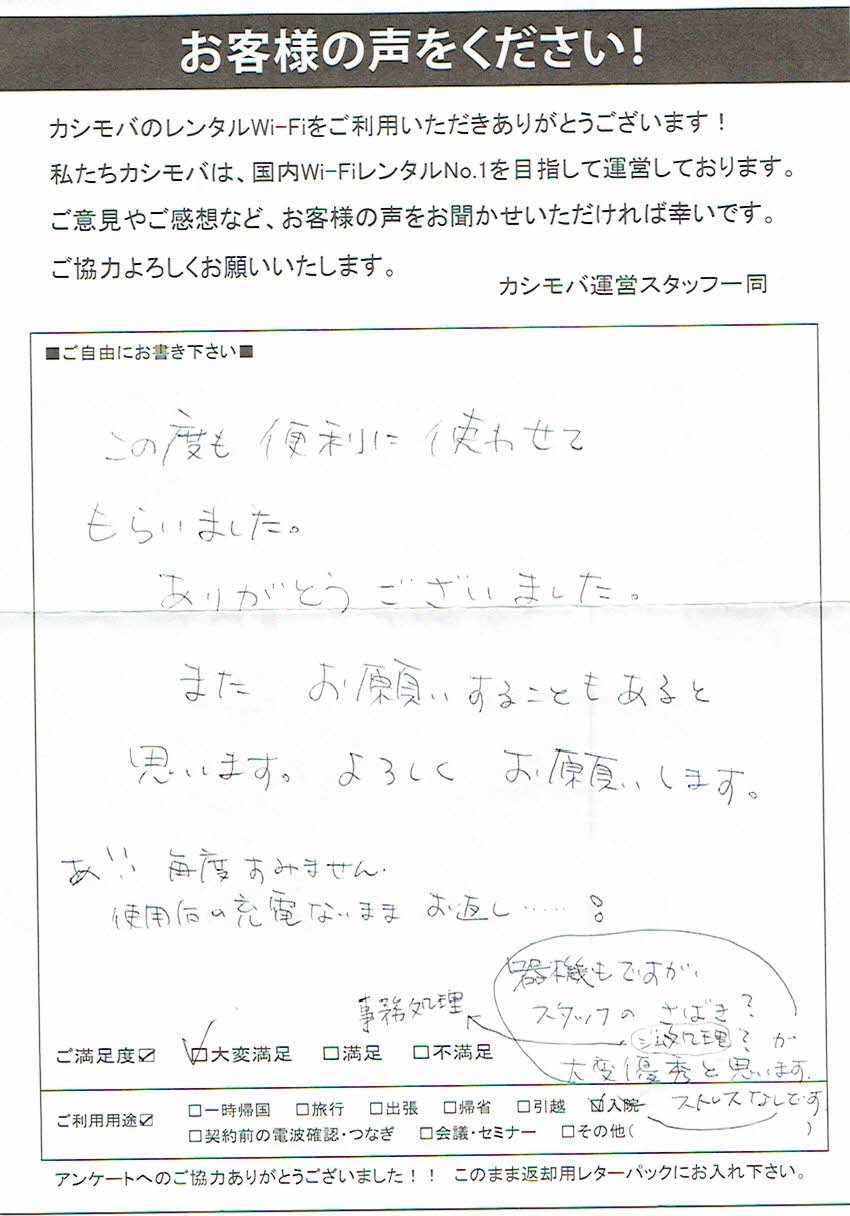 お客様の声をください!
カシモバのレンタルWi-Fiをご利用いただきありがとうございます！
私たちカシモバは、国内Wi-FiレンタルNo.1を目指して運営しております。
ご意見やご感想など、お客様の声をお聞かせいただければ幸いです。
ご協力よろしくお願いいたします。
カシモバ運営スタッフ一同
■ご自由にお書き下さい■
この度も 便利に 使わせて
もらいました。
ありがとうございました。
また お願いすることもあると
思います。よろしく お願いします。
あ!! 毎度すみません.
使用后の充電ないまま お返し……。
器機もですが、
スタッフの さばき?
事務処理
処理? が
大変優秀と思います.
ストレスなしです
ご満足度☑ □大変満足 □満足 □不満足
ご利用用途☑ □一時帰国 □旅行 □出張 □帰省 □引越 ☑入院
□契約前の電波確認・つなぎ □会議・セミナー □その他( )
アンケートへのご協力ありがとうございました！！ このまま返却用レターパックにお入れ下さい。